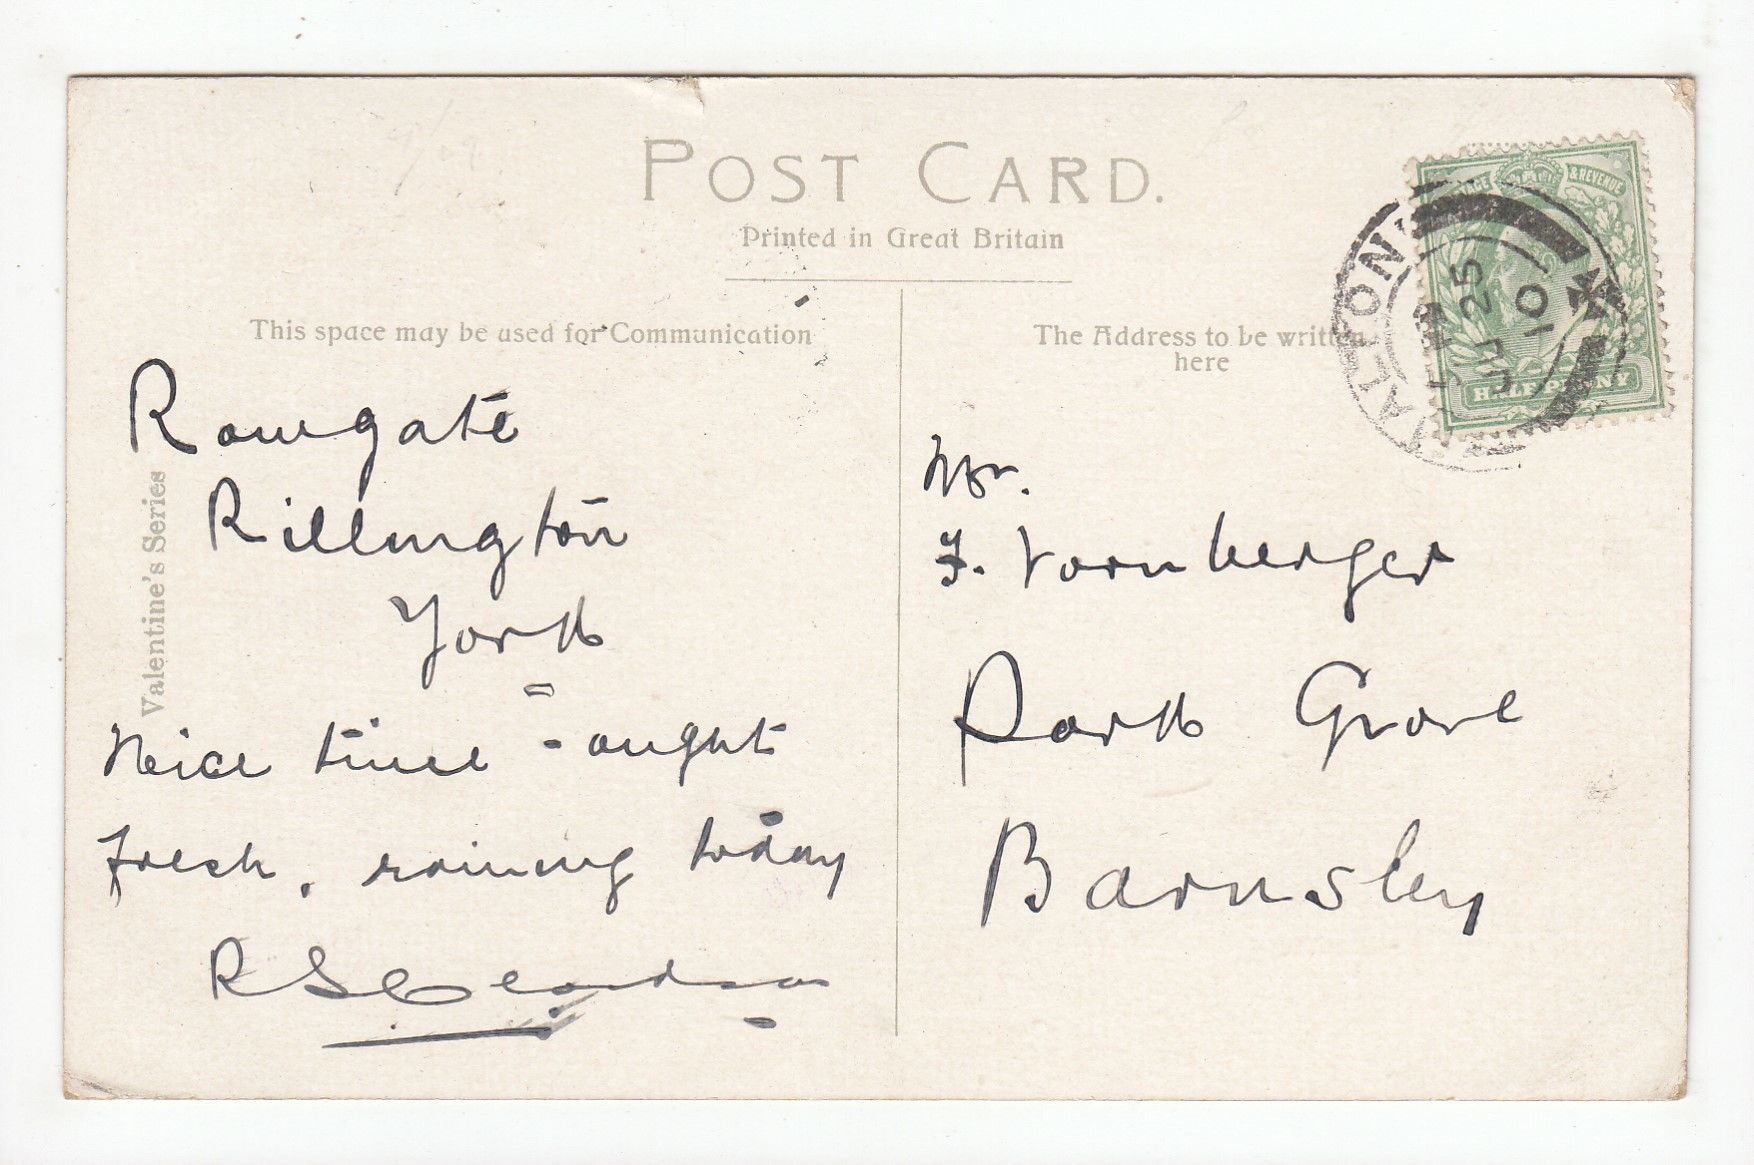 POST CARD.
Printed in Great Britain
This space may be used for Communication
The Address to be written
here
Valentine's Series
Rowgate
Rillington
York
Neice time - ought
fresh, raining today
R S
Mr.
F. Vornberger
Park Grove
Barnsley
& REVENUE
HALFPENNY
MALTON
JU 25
10